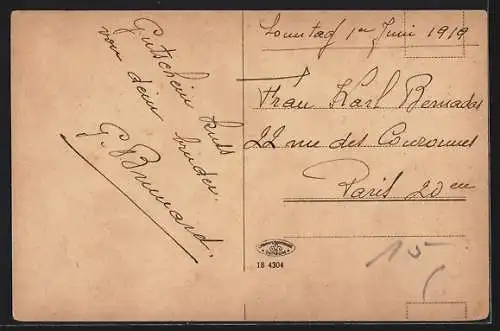 Sonntag 1er Juni 1919
Gutschein Kuss
von dein bruder.
G. Brunard.
Frau Karl Bernadas
22 rue des Couronnes
Paris 20em
18 4304
15